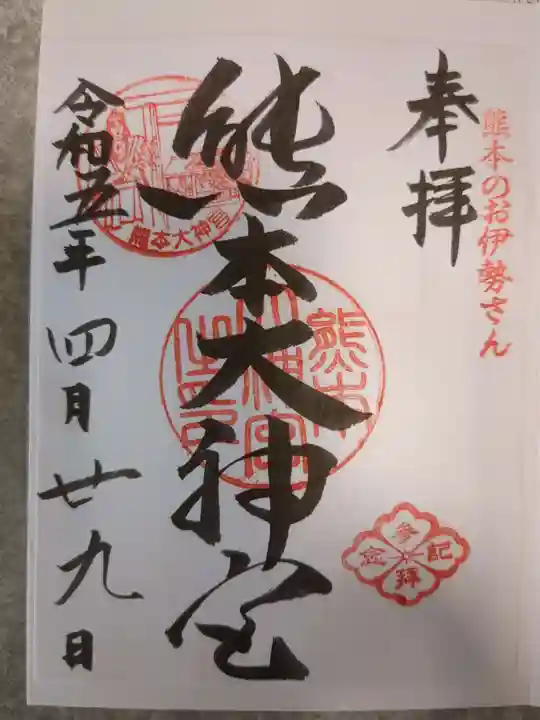 熊本のお伊勢さん
奉拝
熊本大神宮
熊本大神宮
熊本大神宮
参拝記念
令和五年四月廿九日